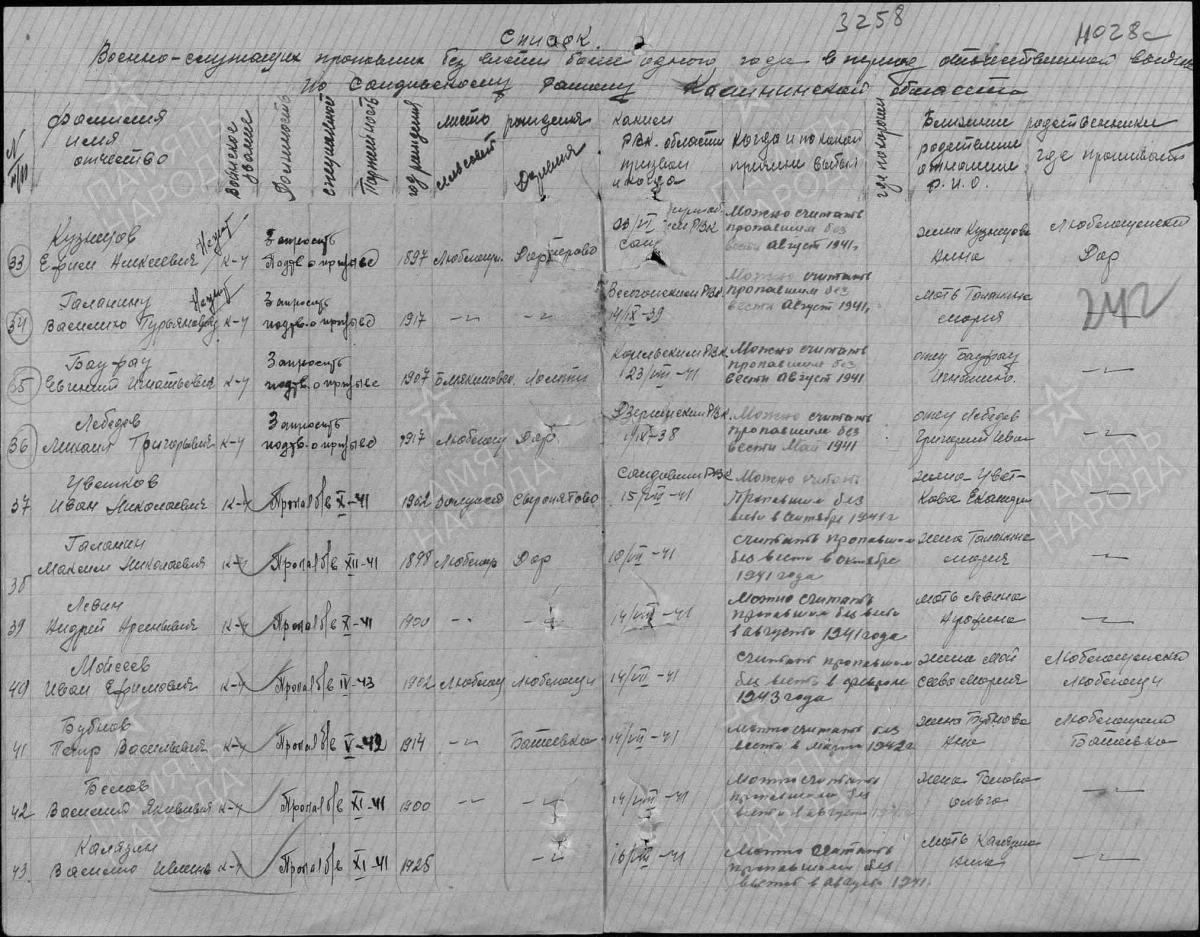 3258
11028с
Список
Военно-служащих пропавших без вести более одного года в период отечественной войны
по Сандовскому району Калининской области
N п/п
Фамилия имя отчество
Воинское звание
Должность специальность
Партийность
год рождения
место рождения
сельсовет
Деревня
каким РВК области призван и когда
Когда и по какой причине выбыл
где похоронен
Близкие родственники
родствен. отношение Ф.И.О.
где проживают
33 Кузнецов Ефим Алексеевич к-ц Запросить подтв. о призыве 1897 Любегощи. Дор
23/VI Санд РВК Можно считать пропавшим без вести Август 1941г. жена Кузнецова Анна Любегощенски Дор
34 Галанину Василию к-ц Запросить подтв. о призыве 1917 -"- -"-
Весьегонским РВК 14/IX-39 Можно считать пропавшим без вести Август 1941г. мать Галанина Мария
242
35 Евгений Игнатьевич к-ц Запросить подтв. о призыве 1907
23/VIII-41 Можно считать пропавшим без вести Август 1941 отец -"-
36 Лебедев Михаил Григорьевич к-ц Запросить подтв. о призыве 1917 Любегощ Дор.
Дзержинским РВК 19IX-38 Можно считать пропавшим без вести Май 1941 отец Лебедев Григорий Иван -"-
37 Цветков Иван Николаевич к-ц Пропал б/в X-41 1902
Сандовским РВК 15/VII-41 Можно считать Пропавшим без вести в Сентябре 1941г жена Цветкова Екатери -"-
38 Галанин Максим Николаевич к-ц Пропал б/в XII-41 1898 Любегощ Дор
10/VII-41 Считать пропавшим без вести в октябре 1941 года жена Галанина Мария -"-
39 Левин Андрей к-ц Пропал б/в X-41 1900 -"- -"-
14/VIII-41 Можно считать пропавшим без вести в августе 1941 года мать Левина -"-
40 Моисеев Иван Ефимович к-ц Пропал б/в IV-43 1902 Любегощ Любегощи
14/VII-41 Считать пропавшим без вести в феврале 1943 года жена Моисеева Мария Любегощенски Любегощи
41 Бубнов Петр Васильевич к-ц Пропал б/в V-42 1914 -"- Башевка
14/VII-41 Можно считать без вести в Марте 1942г жена Бубнова Анна Башевка
42 Белов Василий к-ц Пропал б/в XI-41 1900 -"- -"-
14/VIII-41 Можно считать пропавшим без вести в август 1941 жена Белова Ольга -"-
43. Калязин Василий к-ц Пропал б/в XI-41 1925 -"-
16/VIII-41 Можно считать пропавшим без вестей в августе 1941. мать Калязина Анна -"-
ПАМЯТЬ НАРОДА